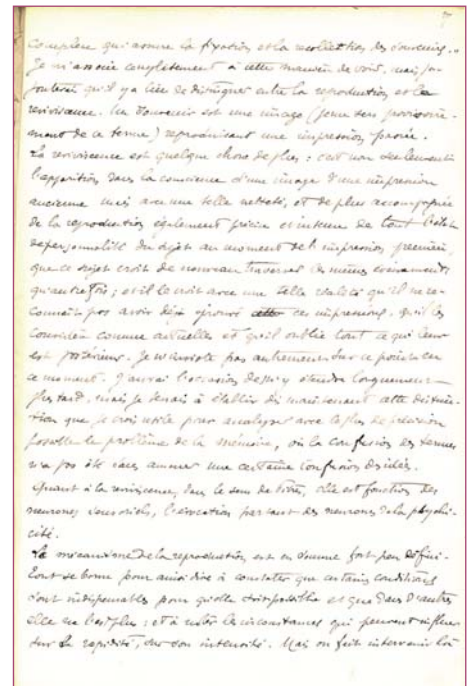 7
complexe qui assure la fixation et la recollection des souvenirs."
Je m'associe complètement à cette manière de voir, mais j'a-
jouterai qu'il y a lieu de distinguer entre la reproduction et la
reviviscence. Un souvenir est une image (je me sers provisoire-
ment de ce terme) reproduisant une impression passée.
La reviviscence est quelque chose de plus : c'est non seulement
l'apparition dans la conscience d'une image d'une impression
ancienne mais avec une telle netteté, et de plus accompagnée
de la reproduction également précise et intense de tout l'état
de personnalité du sujet au moment de l'impression première,
que ce sujet croit de nouveau traverser les mêmes événements
qu'autrefois ; et il le croit avec une telle réalité qu'il ne re-
connaît pas avoir déjà éprouvé ces impressions, qu'il les
considère comme actuelles et qu'il oublie tout ce qui leur
est postérieur. Je n'insiste pas autrement sur ce point en
ce moment. J'aurai l'occasion de m'y étendre longuement
plus tard, mais je tenais à établir dès maintenant cette distinc-
tion que je crois utile pour analyser avec le plus de précision
possible le problème de la mémoire, où la confusion des termes
n'a pas été sans amener une certaine confusion des idées.
Quant à la reviviscence, dans le sens de elle est fonction des
neurones sensoriels, l'évocation partant des neurones de la psychi-
cité.
Le mécanisme de la reproduction est en somme fort peu défini.
On se borne pour ainsi dire à constater que certaines conditions
sont indispensables pour qu'elle soit possible et que dans d'autres
elle ne l'est plus ; et à noter les circonstances qui peuvent influer
sur la rapidité, sur son intensité. Mais on fait intervenir là